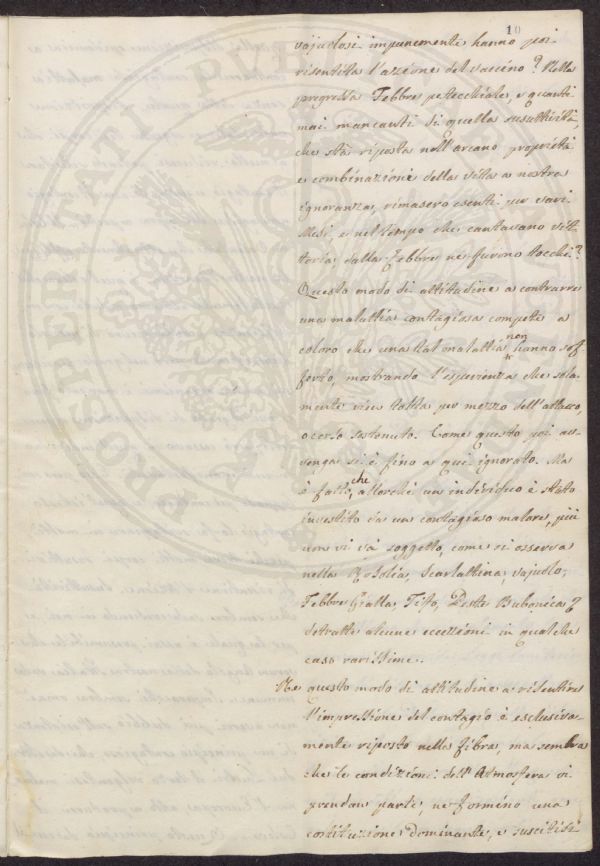 10
vajuolosi impunemente hanno poi
risentita l'azione del vaccino? Nella
pregressa Febbre petecchiale, e quanti
mai mancanti di quella suscettività,
che stà riposta nell'arcano proprietà
e combinazione della vita a nostra
ignoranza, rimasero esenti per varj
Mesi, e nel tempo che cantavano vit-
toria, dalla Febbre ne furono tocchi?
Questo modo di attitudine a contrarre
una malattia contagiosa compete a
coloro che una tal malattia non hanno sof
ferto, mostrando l'esperienza che sola-
mente vien tolta per mezzo dell'attacco,
o corso sostenuto. Come questo poi av-
venga si è fino a qui ignorato. Ma
è fatto, che allorchè un individuo è stato
investito da un contagioso malore, più
non vi và soggetto, come si osserva
nella Rosolia, Scarlattina, vajuolo,
Febbre Gialla, Tifo, Peste Bubonica
detratte alcune eccezioni in qualche
caso rarissime.
Ne questo modo di attitudine a risentire
l'impressione del contagio è esclusiva-
mente riposto nella fibra, ma sembra
che le condizioni dell'Atmosfera vi
prendan parte, ne formino una
costituzione dominante, e susciti
PROSPERITATI PUBLICAE